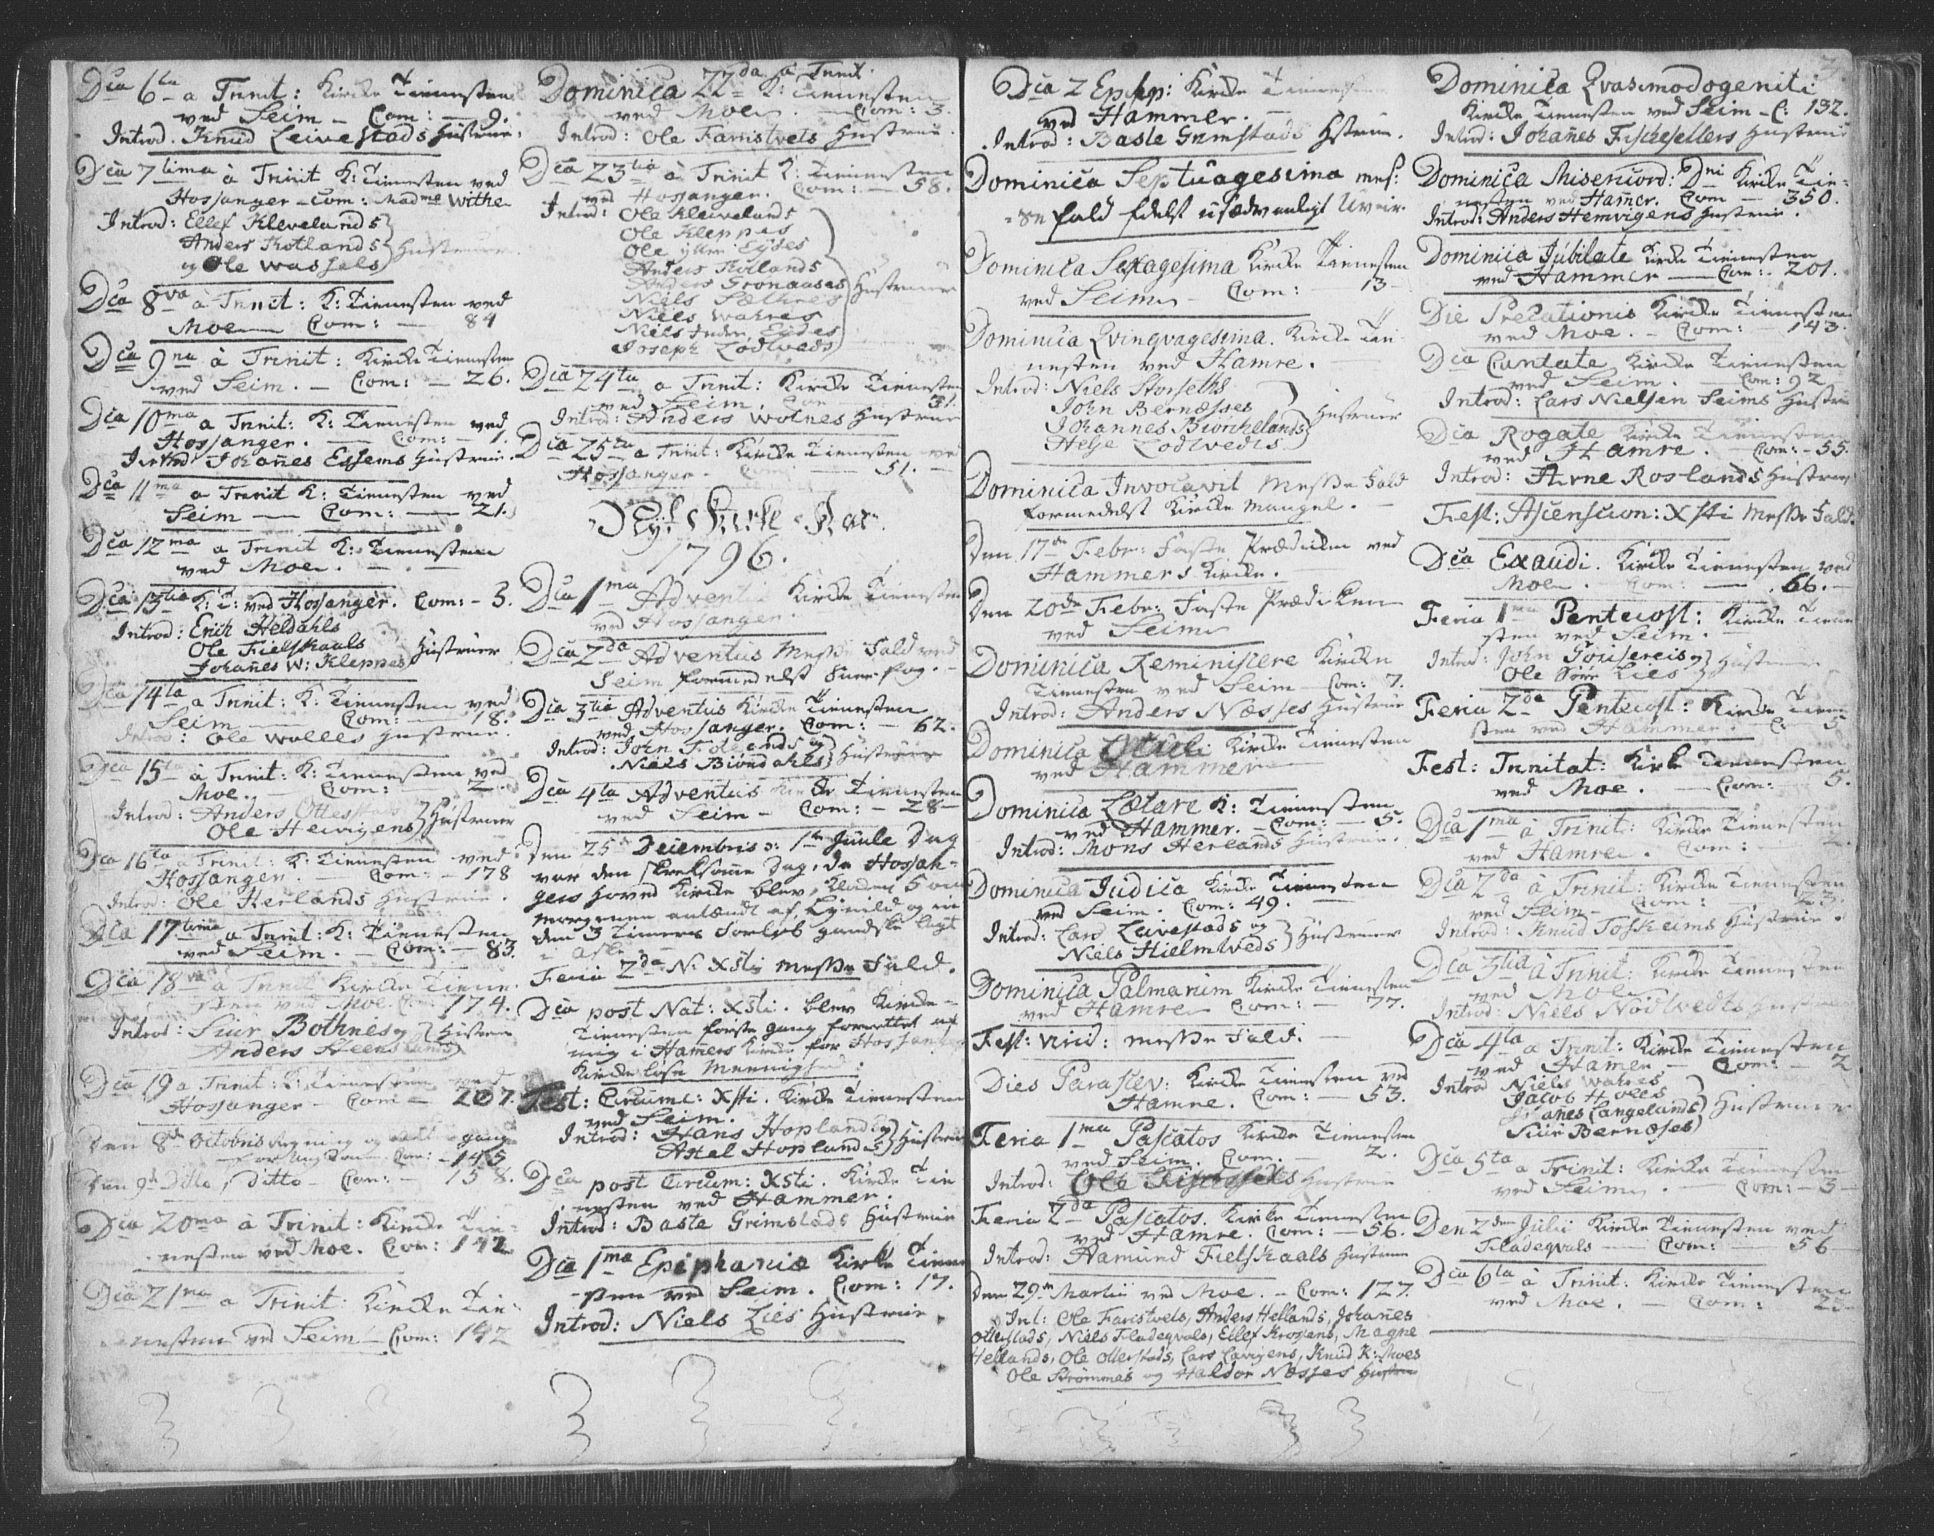 Dca 6ta a Trinit: Kircke Tienesten
ved Seim - Com: - 9.
Introd. Knud Leivestads Hustrue.
Dca 7tima à Trinit K: Tienesten ved
Hossanger - Com: Madme Withe
Introd: Ellef Klevelands
Anders Kotlands
og Ole Wassels } Hustruer
Dca 8va à Trinit: K: Tienesten ved
Moe Com: - 84
Dca 9na à Trinit: Kircke Tienesten
ved Seim. - Com: - 26.
Dca 10ma a Trinit: K: Tienesten ved
Hossanger. - Com: - 1.
Introd: Johañes Essems Hustrue.
Dca 11ma a Trinit K: Tienesten ved
Seim - Com: - 21.
Dca 12ma a Trinit K: Tienesten
ved Moe. -
Dca 13tia K: T: ved Hossanger. Com: - 3.
Introd: Erich Heldahls
Ole Fielskaals
Johañes W: Kleppes } Hustruer
Dca 14ta a Trinit: K: Tienesten ved
Seim Com: - 18.
Introd: Ole Wolles Hustrue.
Dca 15ta à Trinit: K: Tienesten ved
Moe. - Com: - 2.
Introd: Anders
Ole Hevigens } Hustruer
Dca 16ta a Trinit: K: Tienesten ved
Hossanger. - Com: - 178
Introd: Ole Herlands Hustrue.
Dca 17tima a Trinit: K: Tienesten
ved Seim. - Com: - 83.
Dca 18va à Trinit Kircke Tiene-
sten ved Moe. Com: 174.
Introd: Siur Bothnes og
Anders Steenslands } Hustruer
Dca 19 a Trinit: K: Tienesten ved
Hossanger - Com - 207.
Den 8de Octobris
Com: - 145
Den 9de Dito, Ditto - Com: - 158.
Dca 20ma à Trinit: Kircke Tie-
nesten ved Moe. Com: 142
Dca 21ma a Trinit: Kircke Tie-
nesten ved Seim - Com: 142
Dominica 22da a Trinit.
K: Tienesten
ved Moe - Com: 3.
Introd: Ole Faristvets Hustrue.
Dca 23tia à Trinit K: Tienesten
ved Hossanger. Com: - 58.
Introd: Ole Kleivelands
Ole Kleppes
Ole Eydes
Anders Kotlands
Anders Gronaases
Niels Sæthres
Niels Wakres
Niels Indre Eydes
Joseph Lodtveds } Hustruer
Dca 24ta a Trinit: Kircke Tienesten
ved Seim. Com 31.
Introd: Anders Wolnes Hustrue
Dca 25ta a Trinit: Kircke Tienesten ved
Hossanger. Com: 51.
Nyt Kircke-Aar.
1796.
Dca 1ma Adventus Kircke Tienesten
ved Hossanger.
Dca 2da Adventus Messe Fald ved
Seim formedelst Snee-fog. -
Dca 3tia Adventus Kircke Tienesten
ved Hossanger Com: - 62.
Introd: John og
Niels Biondahls } Hustruer
Dca 4ta Adventus Kircke Tienesten
ved Seim - Com: - 28 -
Den 25de Decembris o: 1ste Juule Dag
var den skreksome Dag, da Hossan-
gers Hoved Kircke blev, Klocken 5 om
morgenen antændt af Lynild og in-
den 3 Timers Forløb gandske lagt
i Aske.
Feria 2da N: Xsti Messe Fald.
Dca post Nat: Xsti. blev Kircke-
Tienesten første gang forrettet af
mig i Hamers Kircke for Hossangers
Kirckeløse Meenighed.
Fest: Circumc: Xsti. Kircke Tienesten
ved Seim.
Introd: Hans Hoplands og
Axel Hoplands } Hustruer
Dca post Circum: Xsti. Kircke Tie-
nesten ved Hammer.
Introd: Baste Grimstads Hustrue
Dca 1ma Epiphaniæ Kircke Tiene-
sten ved Seim. Com: 17.
Introd: Niels Lies Hustrue.
Dca 2 Epiph: Kircke Tienesten
ved Hammer.
Introd: Baste Grimstads Hstrue.
Dominica Septuagesima mes-
se fald fdelst usædvanligt Uveir.
Dominica Sexagesima Kircke Tienesten
ved Seim - Com: - 13 -
Dominica Qvinqvagesima. Kircke Tie-
nesten ved Hamre.
Introd: Niels Storseths
John Bernæsses
Johannes Biorchelands
Helje Lodtvedts } Hustruer
Dominica Invocavit Messe Fald
formedelst Kircke Mangel. -
Den 17de Febr: Faste Prædiken ved
Hammers Kircke.
Den 20de Febr: Faste Prædiken
ved Seim
Dominica Reminiscere Kircke
Tienesten ved Seim - Com: 7.
Introd: Anders Næsses Hustrue
Dominica Oculi Kircke Tienesten
ved Hammer
Dominica Lætare K: Tienesten
ved Hammer. - Com: - 5.
Introd: Mons Herlands Hustrue.
Dominica Judica Kircke Tienesten
ved Seim. Com: 49.
Introd: Lars Leivestads og
Niels Hielmtveds } Hustruer
Dominica Palmarum Kircke Tienesten
ved Hamre Com: - 77.
Fest: Virid: Messe Fald. -
Dies Parascev: Kircke Tienesten ved
Hamre. Com: - 53.
Feria 1ma Pascatos Kircke Tienesten
ved Seim. Com. - 2.
Introd: Ole Hustrue
Feria 2da Pascatos. Kircke Tienesten
ved Hamre. Com: - 56.
Introd: Hamund Fielskaals Hustrue
Den 29de Martii ved Moe. - Com: 127.
Int: Ole Faristvets, Anders Hellands, Johañes
Otterstads, Niels Fladeqvals, Ellef Krossens, Magne
Hellands, Ole Otterstads, Lars Lavigens, Knud K: Moes
Ole Strømmes og Haldor Næsses Hustruer
3.
Dominica Qvasimodogeniti
Kircke Tienesten ved Seim - C: 132.
Introd: Johañes Fischesetters Hustrue
Dominica Misericord: Dni Kircke Tie-
nesten ved Hamer. Com - 350.
Introd: Anders Hemvigens Hustrue.
Dominica Jubilate Kircke Tienesten
ved Hammer - Com: - 201.
Die Precationis Kircke Tienesten
ved Moe. - Com: - 143.
Dca Cantate Kircke Tienesten
ved Seim. - Com: 92
Introd: Lars Nielsen Seims Hustrue
Dca Rogate Kircke Tienesten
ved Hamre. - Com: - 55.
Introd: Arne Roslands Hustrue
Fest: Ascension: Xsti Messe Fald.
Dca Exaudi. Kircke Tienesten ved
Moe. Com: - 66. -
Feria 1ma Pentecost: Kircke Tiene-
sten ved Seim.
Introd: John og
Ole Lies } Hustruer
Feria 2da Pentecost: Kircke Tiene-
sten ved Hammer. C: 5
Fest: Trinitat: Kircke Tienesten
ved Moe. - Com: 5.
Dca 1ma à Trinit: Kircke Tienesten
ved Hamre. Com: 2.
Dca 2da à Trinit: Kircke Tienesten
ved Seim - Com:
Introd: Knud Toskeims Hustrue.
Dca 3tia à Trinit: Kircke Tienesten
ved Moe
Introd: Niels Nodtvedts Hustrue
Dca 4ta a Trinit: Kircke Tienesten
ved Hamer - Com: - 2
Introd Niels Wakres
Jacob Holes
Johañes Langelands
Siur Bernæsses } Hustruer
Dca 5ta a Trinit: Kircke Tienesten
ved Seim. - Com: - 3 -
Den 2den Julii Kircke Tienesten ved
Fladeqvals - Com: - 56
Dca 6ta à Trinit: Kircke Tienesten
ved Moe. - Com: